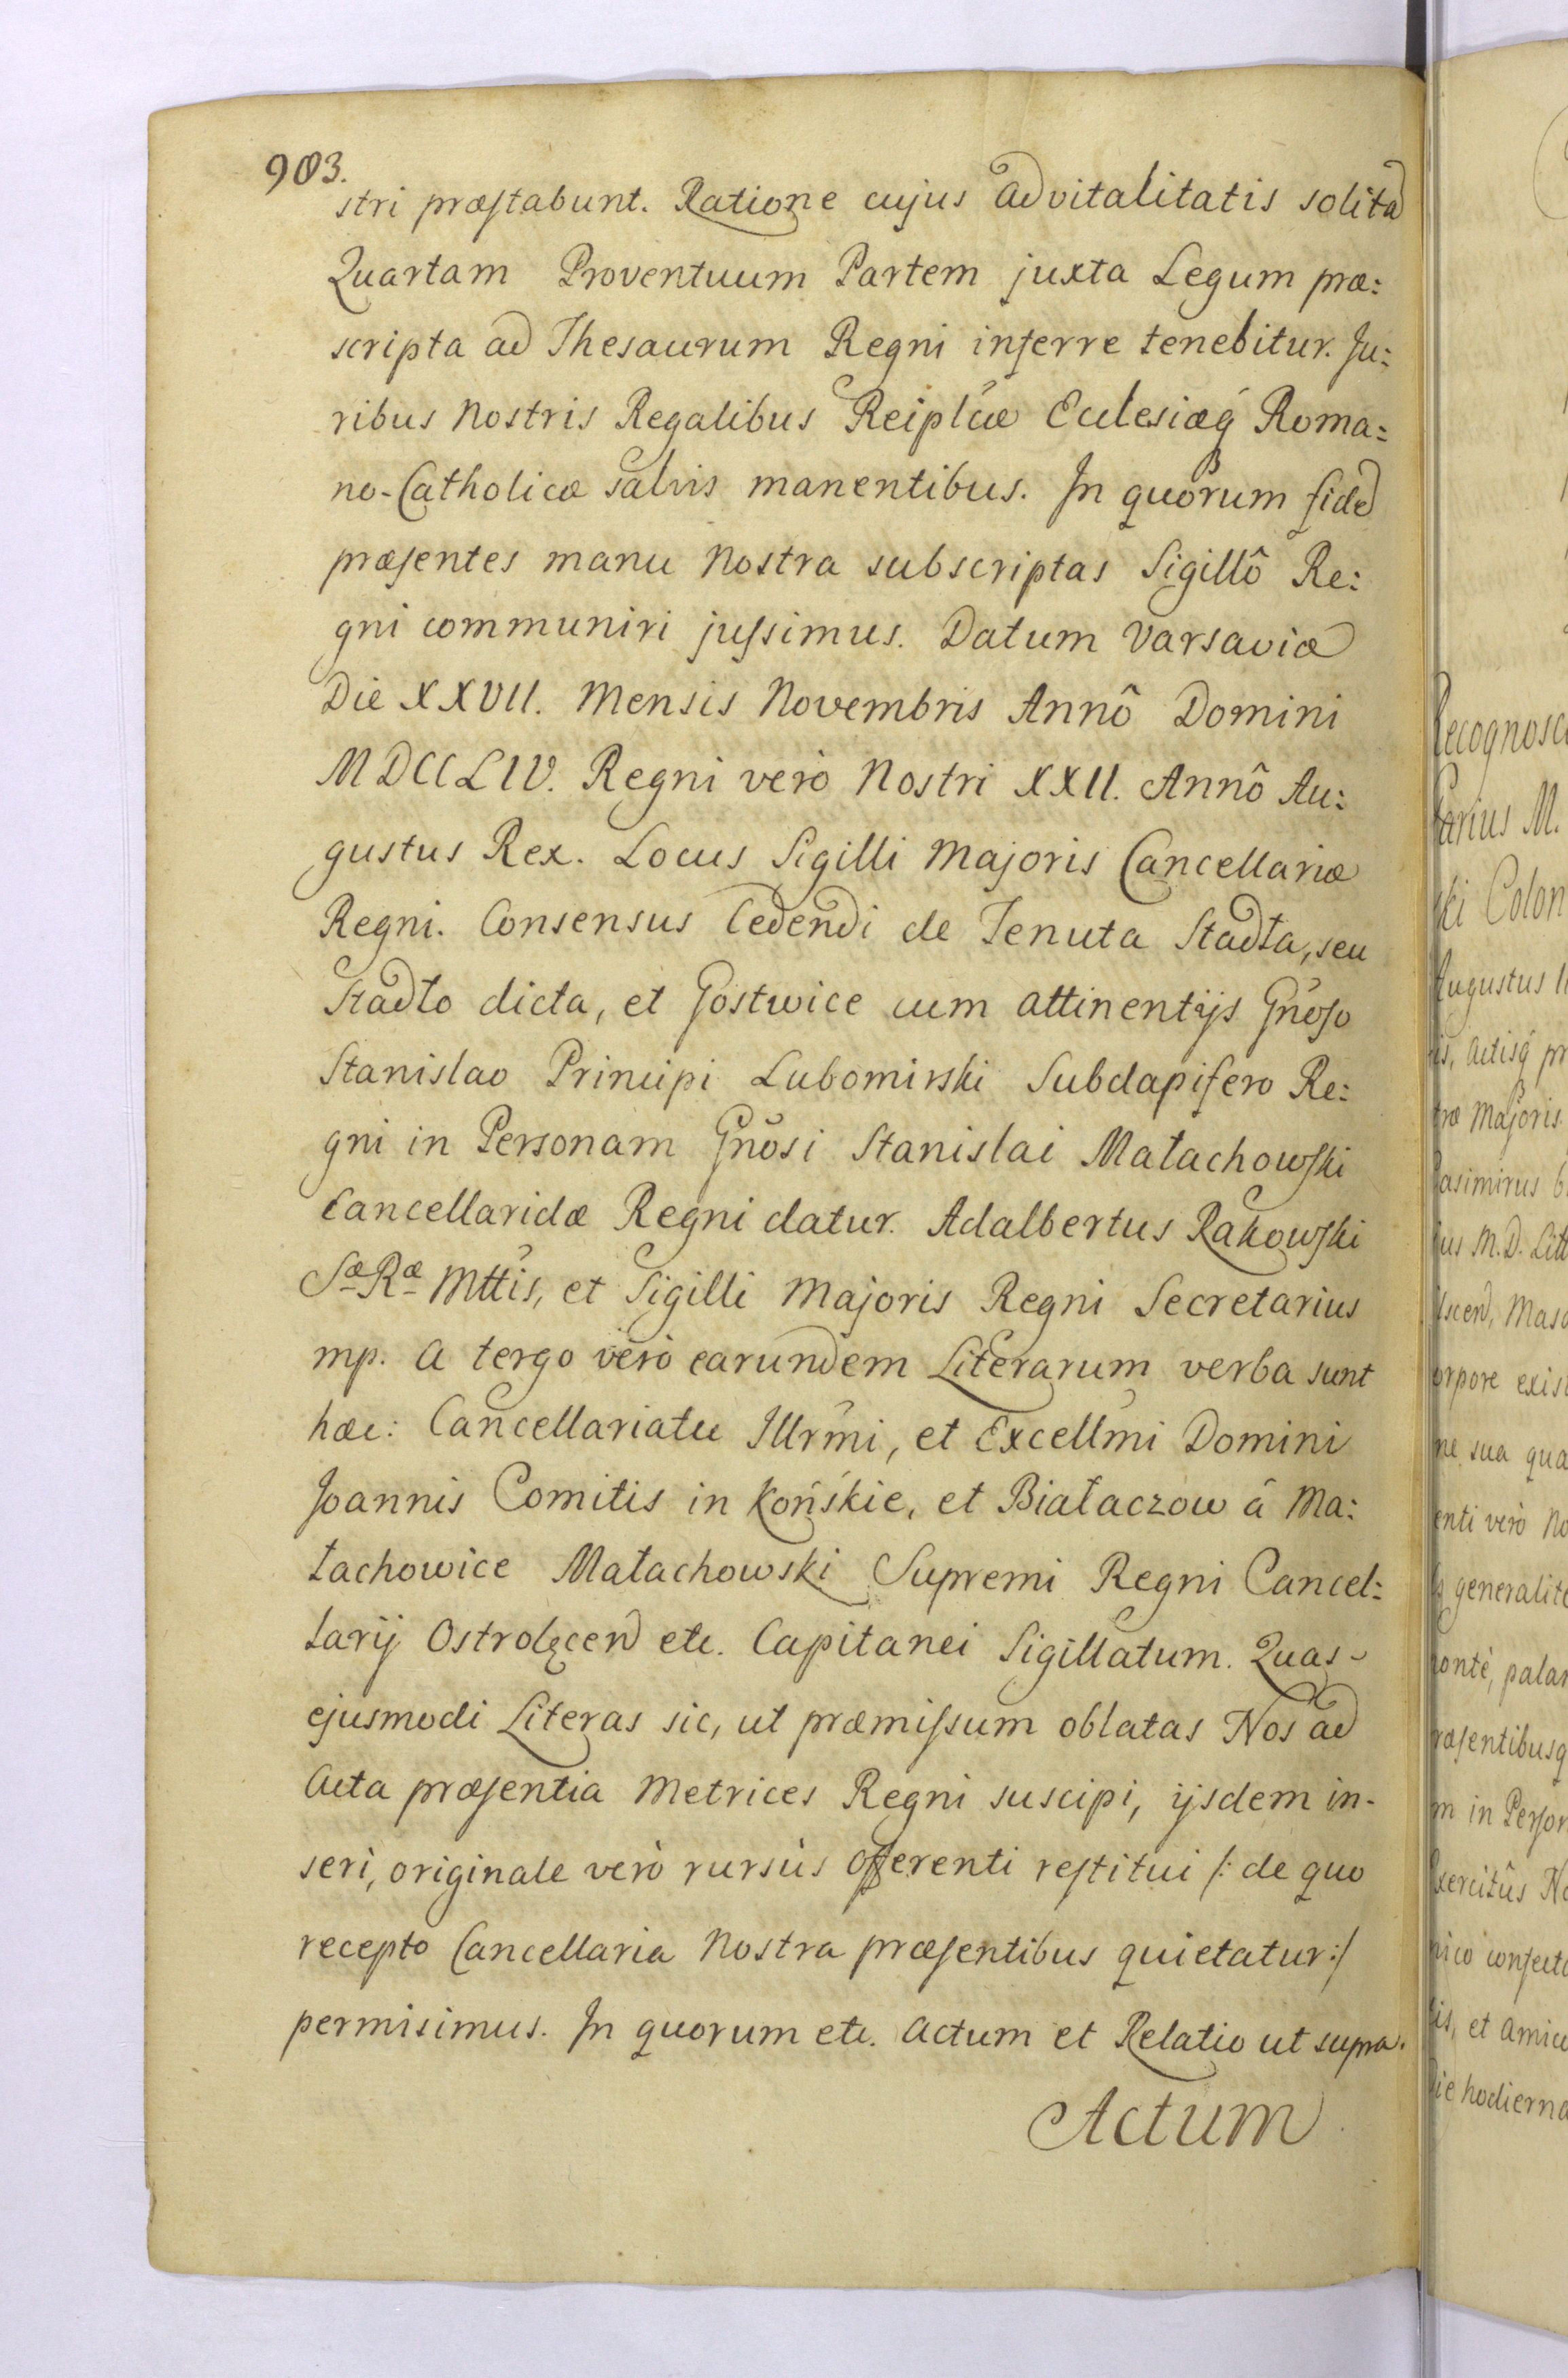 903.
stri præstabunt. Ratione cujus advitalitatis solita
Quartam Proventuum Partem juxta Legum præ:
scripta ad Thesaurum Regni inferre tenebitur. Ju:
ribus Nostris Regalibus Reiplcæ Ecclesiæq́ Roma:
no-Catholicæ salvis manentibus. In quorum fide
præsentes manu Nostra subscriptas Sigillô Re:
gni communiri jussimus. Datum Varsaviæ
Die XXVII. Mensis Novembris Annô Domini
MDCCLIV. Regni verò Nostri XXII. Annô Au:
gustus Rex. Locus Sigilli Majoris Cancellariæ
Regni. Consensus Cedendi de Tenuta Stadła, seu
Stadło dicta, et Gostwice cum attinentijs Gnoso
Stanislao Principi Lubomirski Subdapifero Re:
gni in Personam Gnosi Stanislai Małachowski
Cancellaridæ Regni datur. Adalbertus Rakowski
Sæ Ræ Mttis, et Sigilli Majoris Regni Secretarius
mp. A tergo verò earundem Literarum verba sunt
hæc: Cancellariatu Illrmi, et Excellmi Domini
Joannis Comitis in Końskie, et Białaczow á Ma:
łachowice Małachowski Supremi Regni Cancel:
larij Ostrołęcen etc. Capitanei Sigillatum. Quas
ejusmodi Literas sic, ut præmissum oblatas Nos ad
Acta præsentia Metrices Regni suscipi, ijsdem in-
seri, originale verò rursùs offerenti restitui /: de quo
recepto Cancellaria Nostra præsentibus quietatur :/
permisimus. In quorum etc. Actum et Relatio ut supra.
Actum